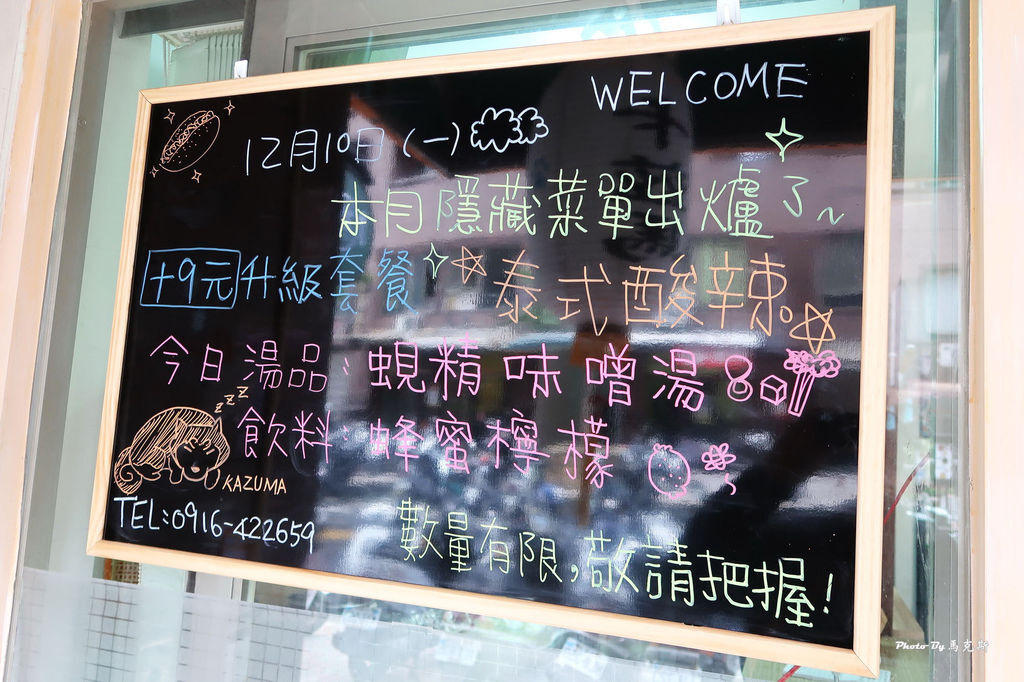 WELCOME
12月10日(一)
本月隱藏菜單出爐了~
+9元升級套餐 泰式酸辣。
今日湯品:蜆精味噌湯
zzz
飲料:蜂蜜檸檬
KAZUMA
TEL:0916-422659
數量有限,敬請把握!
Photo By 馬克斯